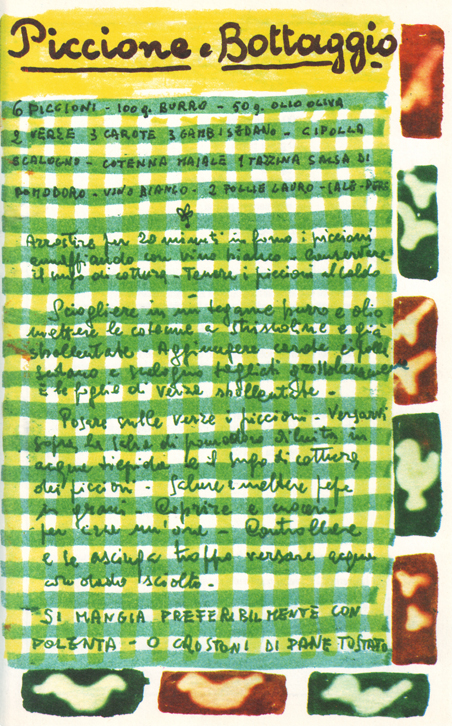 Piccione e Bottaggio
6 PICCIONI - 100 g. BURRO - 50 g. OLIO OLIVA
2 VERZE 3 CAROTE 3 GAMBI SEDANO - CIPOLLA
SCALOGNO - COTENNA MAIALE 1 TAZZINA SALSA DI
POMODORO - VINO BIANCO - 2 FOGLIE LAURO - SALE - PEPE
Arrostire per 20 minuti in forno i piccioni
annaffiando con vino bianco - Conservare
il sugo di cottura - Tenere i piccioni al caldo
Sciogliere in un tegame burro e olio
mettere le cotenne a striscioline e già
sbollentate - Aggiungere carote cipolla
sedano e scalogno tagliati grossolanamente
e le foglie di verze sbollentate -
Posare sulle verze i piccioni - Versarvi
sopra la salsa di pomodoro diluita in
acqua tiepida e il sugo di cottura
dei piccioni - Salare e mettere pepe
in grani - Coprire e cuocere
per circa un'ora - Controllare
e se asciuga troppo versare acqua
con dado sciolto -
SI MANGIA PREFERIBILMENTE CON
POLENTA - O CROSTONI DI PANE TOSTATO